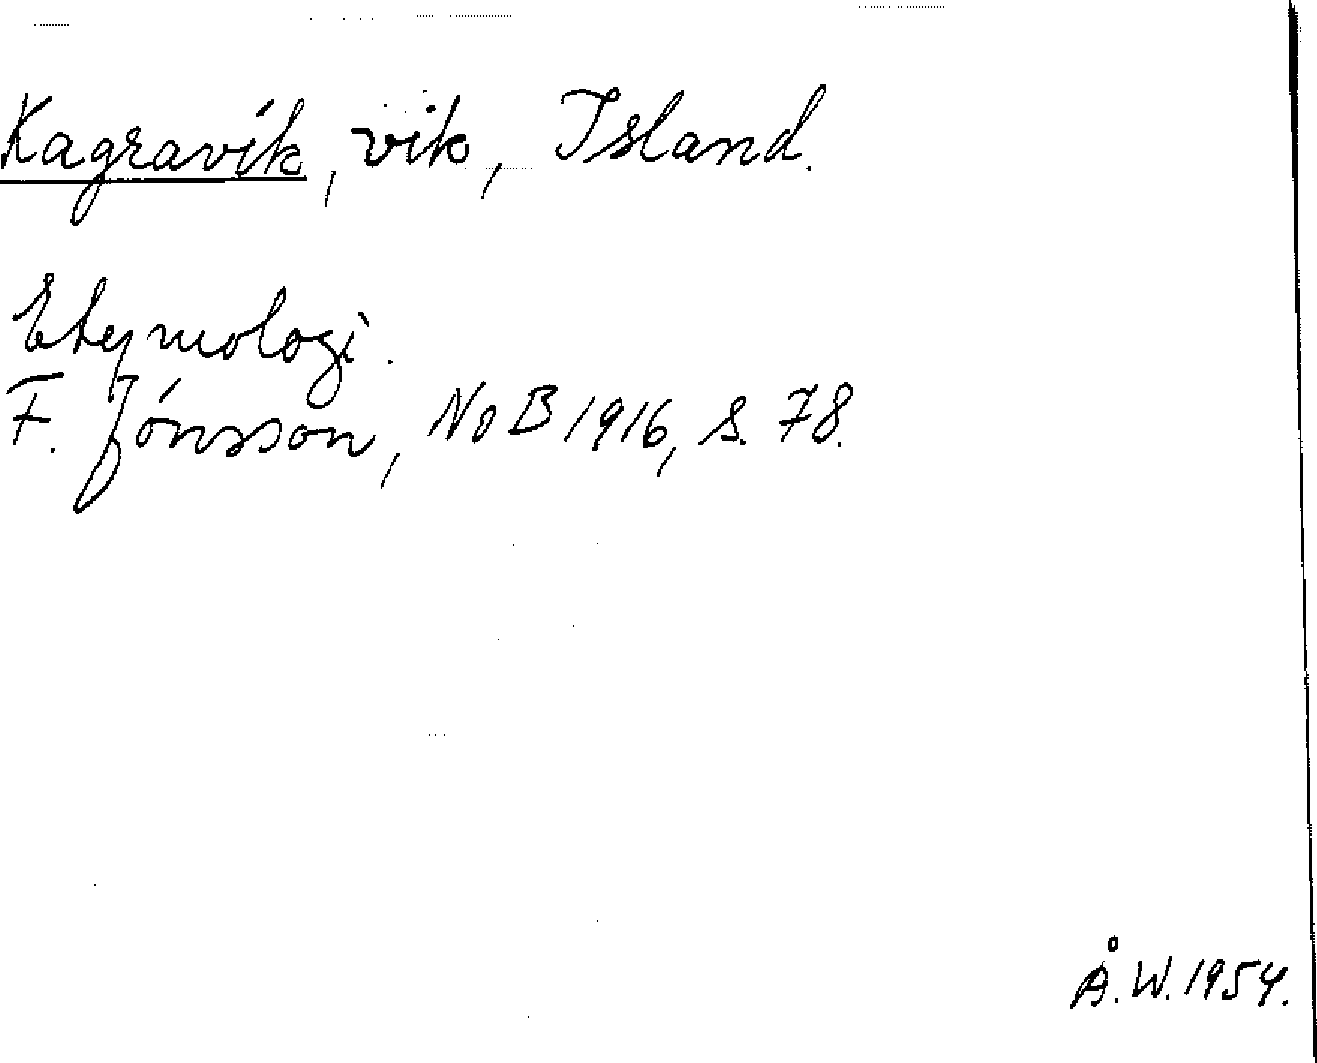 Kagravík, vik, Island.
Etymologi.
F. Jónsson, NoB 1916, s. 78.
Å. W. 1954.